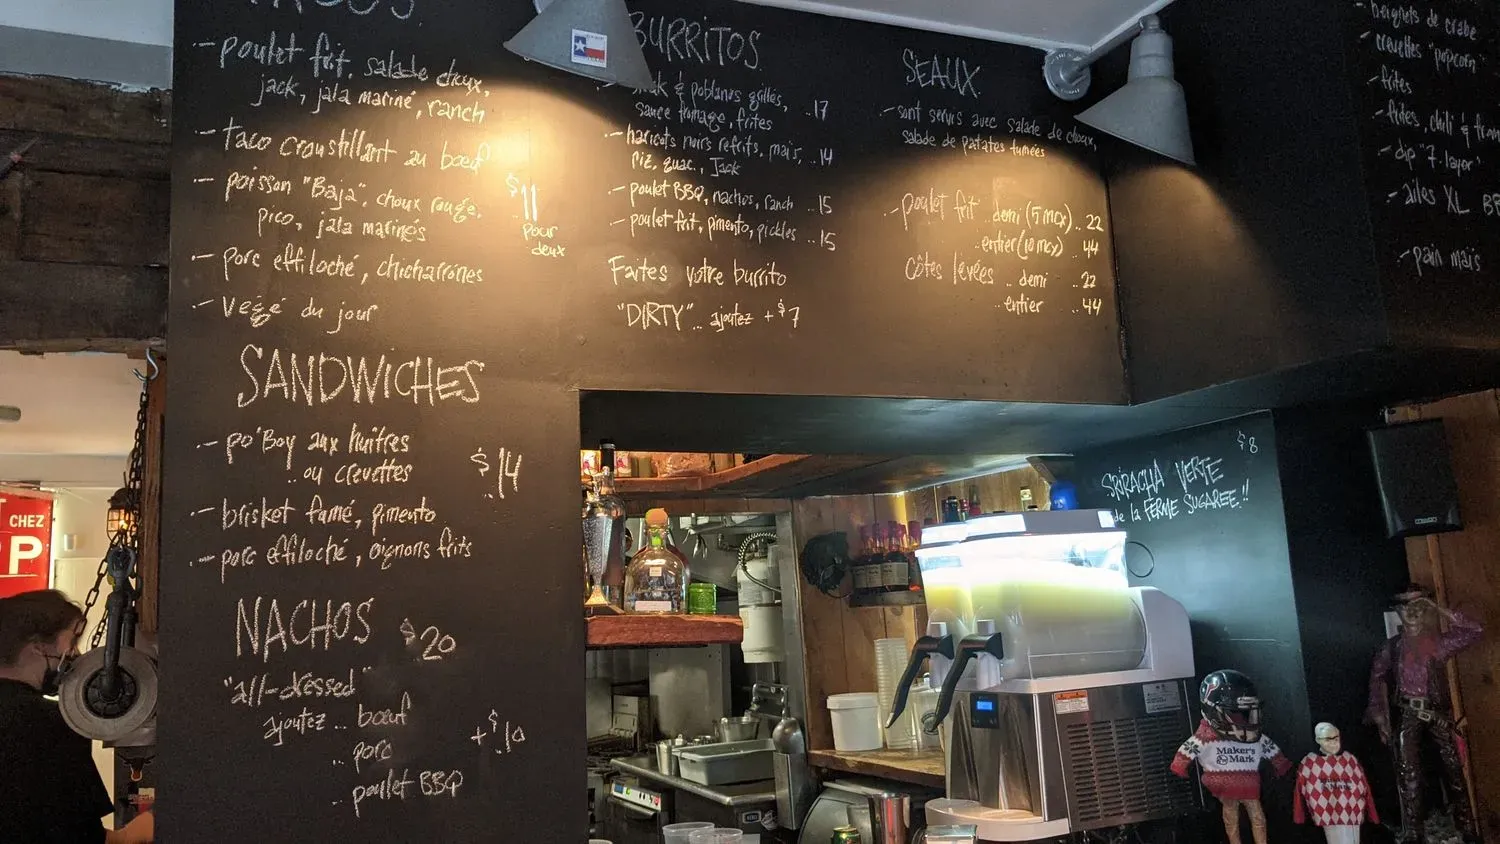 TACOS
- poulet frit, salade choux,
jack, jala mariné, ranch
- taco croustillant au bœuf
- poisson "Baja", choux rouge,
pico, jala marinés
- porc effiloché, chicharrónes
- végé du jour
$11
pour
deux
SANDWICHES
- po'Boy aux huîtres
.. ou crevettes
$14
- brisket fumé, pimento
- porc effiloché, oignons frits
NACHOS $20
"all-dressed"
ajoutez ... bœuf
.. porc
.. poulet BBQ
+ $10
BURRITOS
& poblanos grillés,
sauce fromage, frites ..17
- haricots noirs refrits, maïs,
riz, guac., Jack ..14
- poulet BBQ, nachos, ranch ..15
- poulet frit, pimento, pickles ..15
Faites votre burrito
"DIRTY".. ajoutez + $7
SEAUX
- sont servis avec salade de choux,
salade de patates fumées
- poulet frit .. demi (5 mcx) .. 22
.. entier (10 mcx) 44
Côtes levées .. demi .. 22
.. entier .. 44
beignets de crabe
crevettes "popcorn"
- frites
- frites, chili &
- dip "7 layer"
- ailes XL
- pain maïs
$8
SRIRACHA VERTE
de la FERME SUGAREE!!
CHEZ
P
Maker's
Mark